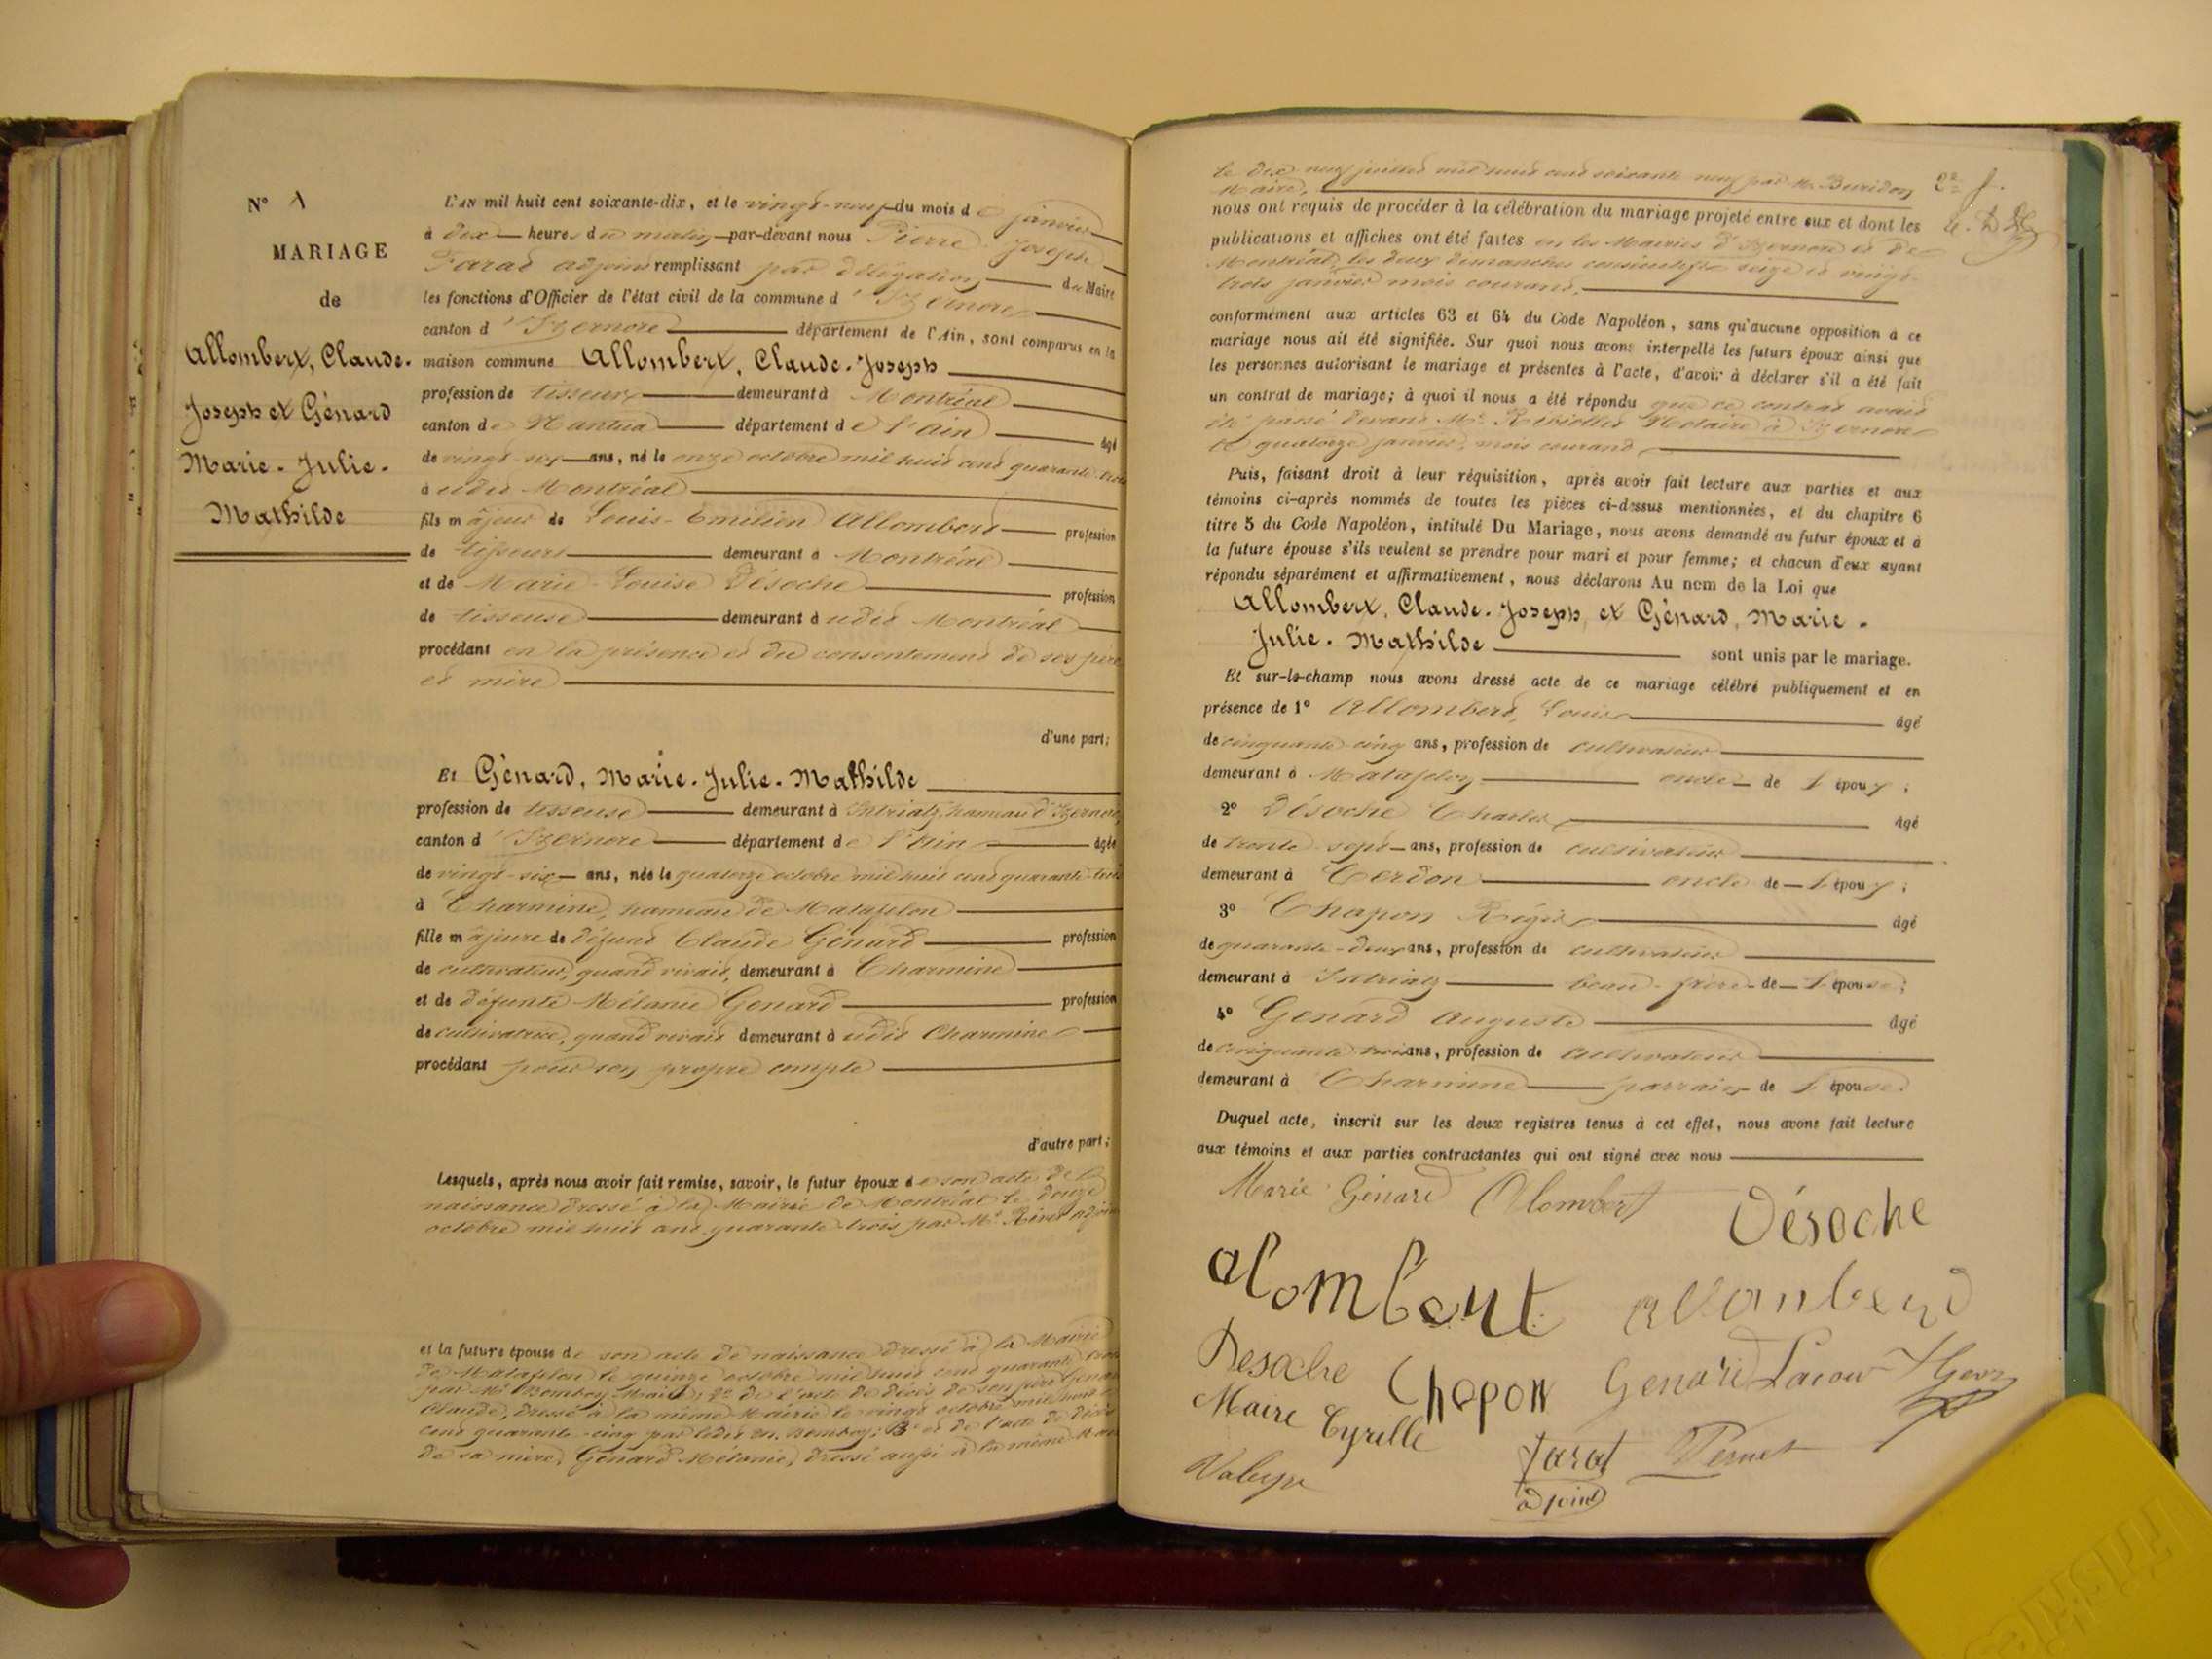 N° 1
MARIAGE
de
Allombert, Claude-
Joseph et Génard
Marie-Julie-
Mathilde
L'AN mil huit cent soixante-dix, et le vingt-neuf du mois de janvier
à dix heures du matin par-devant nous Pierre Joseph
Farat adjoint remplissant par délégation du Maire
les fonctions d'Officier de l'état civil de la commune d'Izernore
canton d'Izernore département de l'Ain, sont comparus en la
maison commune Allombert, Claude-Joseph
profession de tisseur demeurant à Montréal
canton de Nantua département de l'Ain âgé
de vingt-six ans, né le onze octobre mil huit cent quarante-trois
à udit Montréal
fils majeur de Louis-Emilien Allombert profession
de tisseur demeurant à Montréal
et de Marie-Louise Désoche profession
de tisseuse demeurant à udit Montréal
procédant en la présence et du consentement de ses père
et mère
d'une part;
Et Génard, Marie-Julie-Mathilde
profession de tisseuse demeurant à Intriatz, hameau d'Izernore,
canton d'Izernore département de l'Ain âgée
de vingt-six ans, née le quatorze octobre mil huit cent quarante-trois
à Charmine, hameau de Matafelon
fille majeure de défunt Claude Génard profession
de cultivateur, quand vivait, demeurant à Charmine
et de défunte Mélanie Génard profession
de cultivatrice, quand vivait demeurant à udit Charmine
procédant pour son propre compte
d'autre part;
Lesquels, après nous avoir fait remise, savoir, le futur époux de son acte de
naissance dressé à la Mairie de Montréal le douze
octobre mil huit cent quarante-trois par Mr. Rivet adjoint
et la future épouse de son acte de naissance dressé à la Mairie
de Matafelon le quinze octobre mil huit cent quarante trois
par Mr. Bomboy Maire; 2° de l'acte de décès de son père Génard
Claude, dressé à la même Mairie le vingt octobre mil huit
cent quarante-cinq par ledit m. Bomboy; 3° et de l'acte de décès
de sa mère, Génard Mélanie, dressé aussi à la même Mairie
le dix neuf juillet mil huit cent soixante neuf par M. Buridon
Maire,
nous ont requis de procéder à la célébration du mariage projeté entre eux et dont les
publications et affiches ont été faites en les Mairies d'Izernore et de
Montréal, les deux dimanches consécutifs seize et vingt-
trois janvier mois courant.
conformément aux articles 63 et 64 du Code Napoléon, sans qu'aucune opposition à ce
mariage nous ait été signifiée. Sur quoi nous avons interpellé les futurs époux ainsi que
les personnes autorisant le mariage et présentes à l'acte, d'avoir à déclarer s'il a été fait
un contrat de mariage; à quoi il nous a été répondu que ce contrat avait
été passé devant Me. Notaire à Izernore
le quatorze janvier, mois courant
Puis, faisant droit à leur réquisition, après avoir fait lecture aux parties et aux
témoins ci-après nommés de toutes les pièces ci-dessus mentionnées, et du chapitre 6
titre 5 du Code Napoléon, intitulé Du Mariage, nous avons demandé au futur époux et à
la future épouse s'ils veulent se prendre pour mari et pour femme; et chacun d'eux ayant
répondu séparément et affirmativement, nous déclarons Au nom de la Loi que
Allombert, Claude-Joseph, et Génard, Marie-
Julie-Mathilde sont unis par le mariage.
Et sur-le-champ nous avons dressé acte de ce mariage célébré publiquement et en
présence de 1° Allombert, Louis âgé
de cinquante-cinq ans, profession de cultivateur
demeurant à Matafelon oncle de l'époux;
2° Désoche Charles âgé
de trente-sept ans, profession de cultivateur
demeurant à Cerdon oncle de l'époux;
3° Chapon Régis âgé
de quarante-deux ans, profession de cultivateur
demeurant à Intriatz beau-frère de l'épouse;
4° Génard Auguste âgé
de cinquante-trois ans, profession de cultivateur
demeurant à Charmine parrain de l'épouse
Duquel acte, inscrit sur les deux registres tenus à cet effet, nous avons fait lecture
aux témoins et aux parties contractantes qui ont signé avec nous
Marie Génard Alombert Désoche
alombert allonberd
Desoche Chapon Genard Lacour
Maire Cyrille
Farat Pernet
adjoint